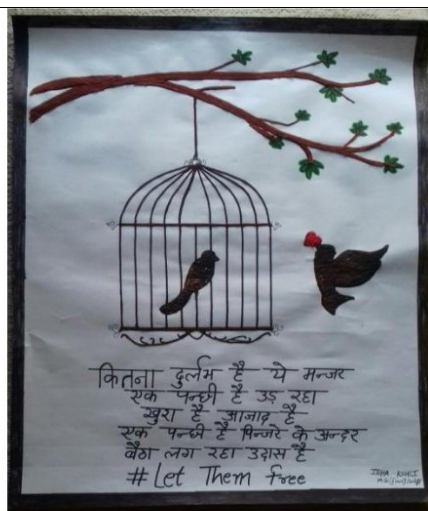 कितना दुर्लभ है ये मन्जर
एक पन्छी है उड़ रहा
खुश है आजाद है
एक पन्छी है पिन्जरे के अन्दर
बैठा लग रहा उदास है
#Let Them free
ISHA KOHLI